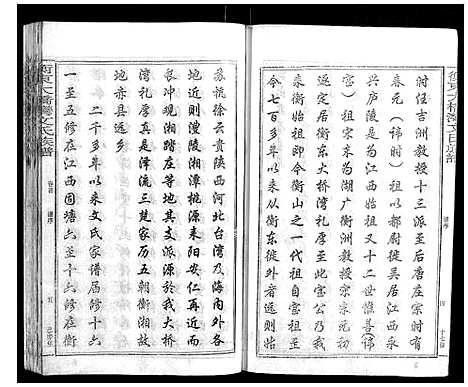 衡东大桥湾文氏族谱
时任吉洲教授十三派至后唐庄宗时有
春元(讳时)祖以都尉徙吴居江西永
兴庐陵是为江西始祖又十二世惟善(讳
宽)祖宋末为湖广衡洲教授宗宋元初
遂定居衡东大桥湾礼厚至此宽公乃我
来衡始祖即今衡山之一代祖自宗安公至
今七百多年以来从衡东徙外者更
有逶则有
苏杭徐云贵陕西河北台湾及海内外各
地近则有湘潭桃源耒阳攸县醴陵衡
银冲观湘踏庄等地其支派源於我大桥
湾礼厚真是泽流三楚家历五朝衡湘故
地赤县远乡
二千多年以来文氏家谱届修十六
一至五修在江西固塘六至十六修在衡
衡东大桥湾文氏族谱
卷首
谱序